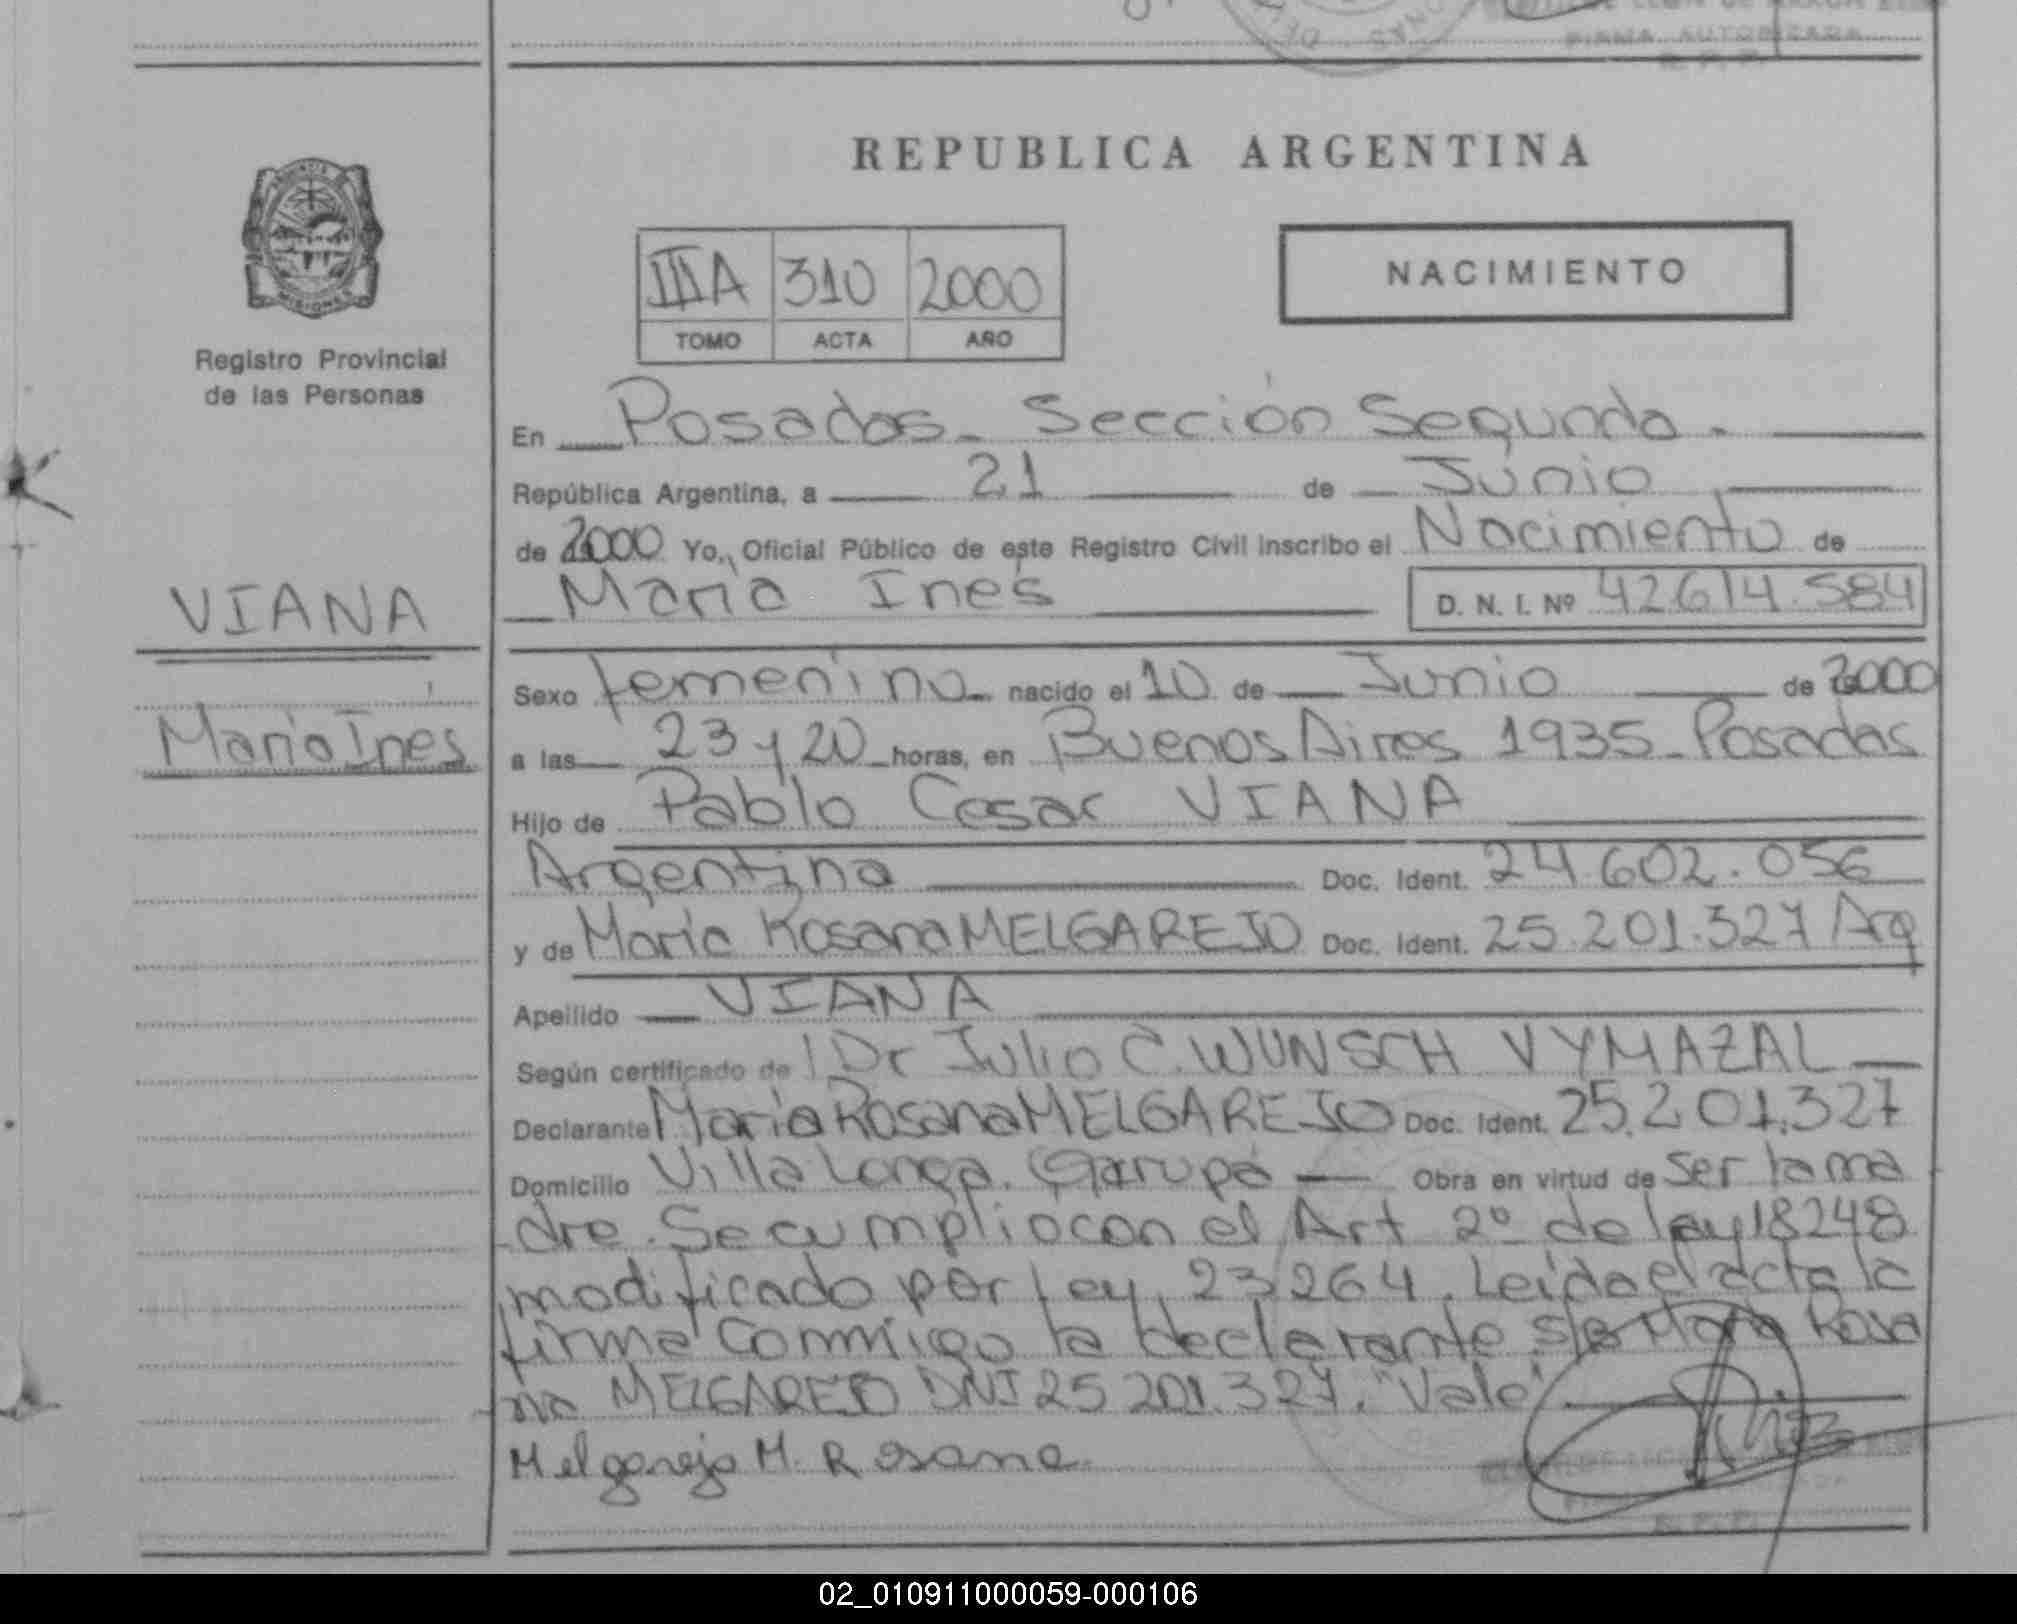 FIRMA AUTORIZADA
R. P. P.
REPUBLICA ARGENTINA
MISIONES
Registro Provincial
de las Personas
IIIA 310 2000
TOMO ACTA AÑO
NACIMIENTO
En Posadas - Sección Segunda -
República Argentina, a 21 de Junio
de 2000 Yo, Oficial Público de este Registro Civil inscribo el Nacimiento de
María Inés D. N. I. Nº 42614.584
VIANA
María Inés
Sexo femenino nacido el 10 de Junio de 2000
a las 23 y 20 horas, en Buenos Aires 1935 - Posadas
Hijo de Pablo Cesar VIANA
Argentina Doc. Ident. 24.602.056
y de María Rosana MELGAREJO Doc. Ident. 25.201.327 Arg
Apellido VIANA
Según certificado de Dr Julio C. WUNSCH VYMAZAL
Declarante María Rosana MELGAREJO Doc. Ident. 25.201.327
Domicilio Villa Longa. Garupá Obra en virtud de ser la ma
dre. Se cumplio con el Art 2º de ley 18248
modificado por ley 23264. Leida el acta la
firma conmigo la declarante s/b María Rosa
na MELGAREJO DNI 25 201.327. "Vale"
Melgarejo M. Rosana
02_010911000059-000106